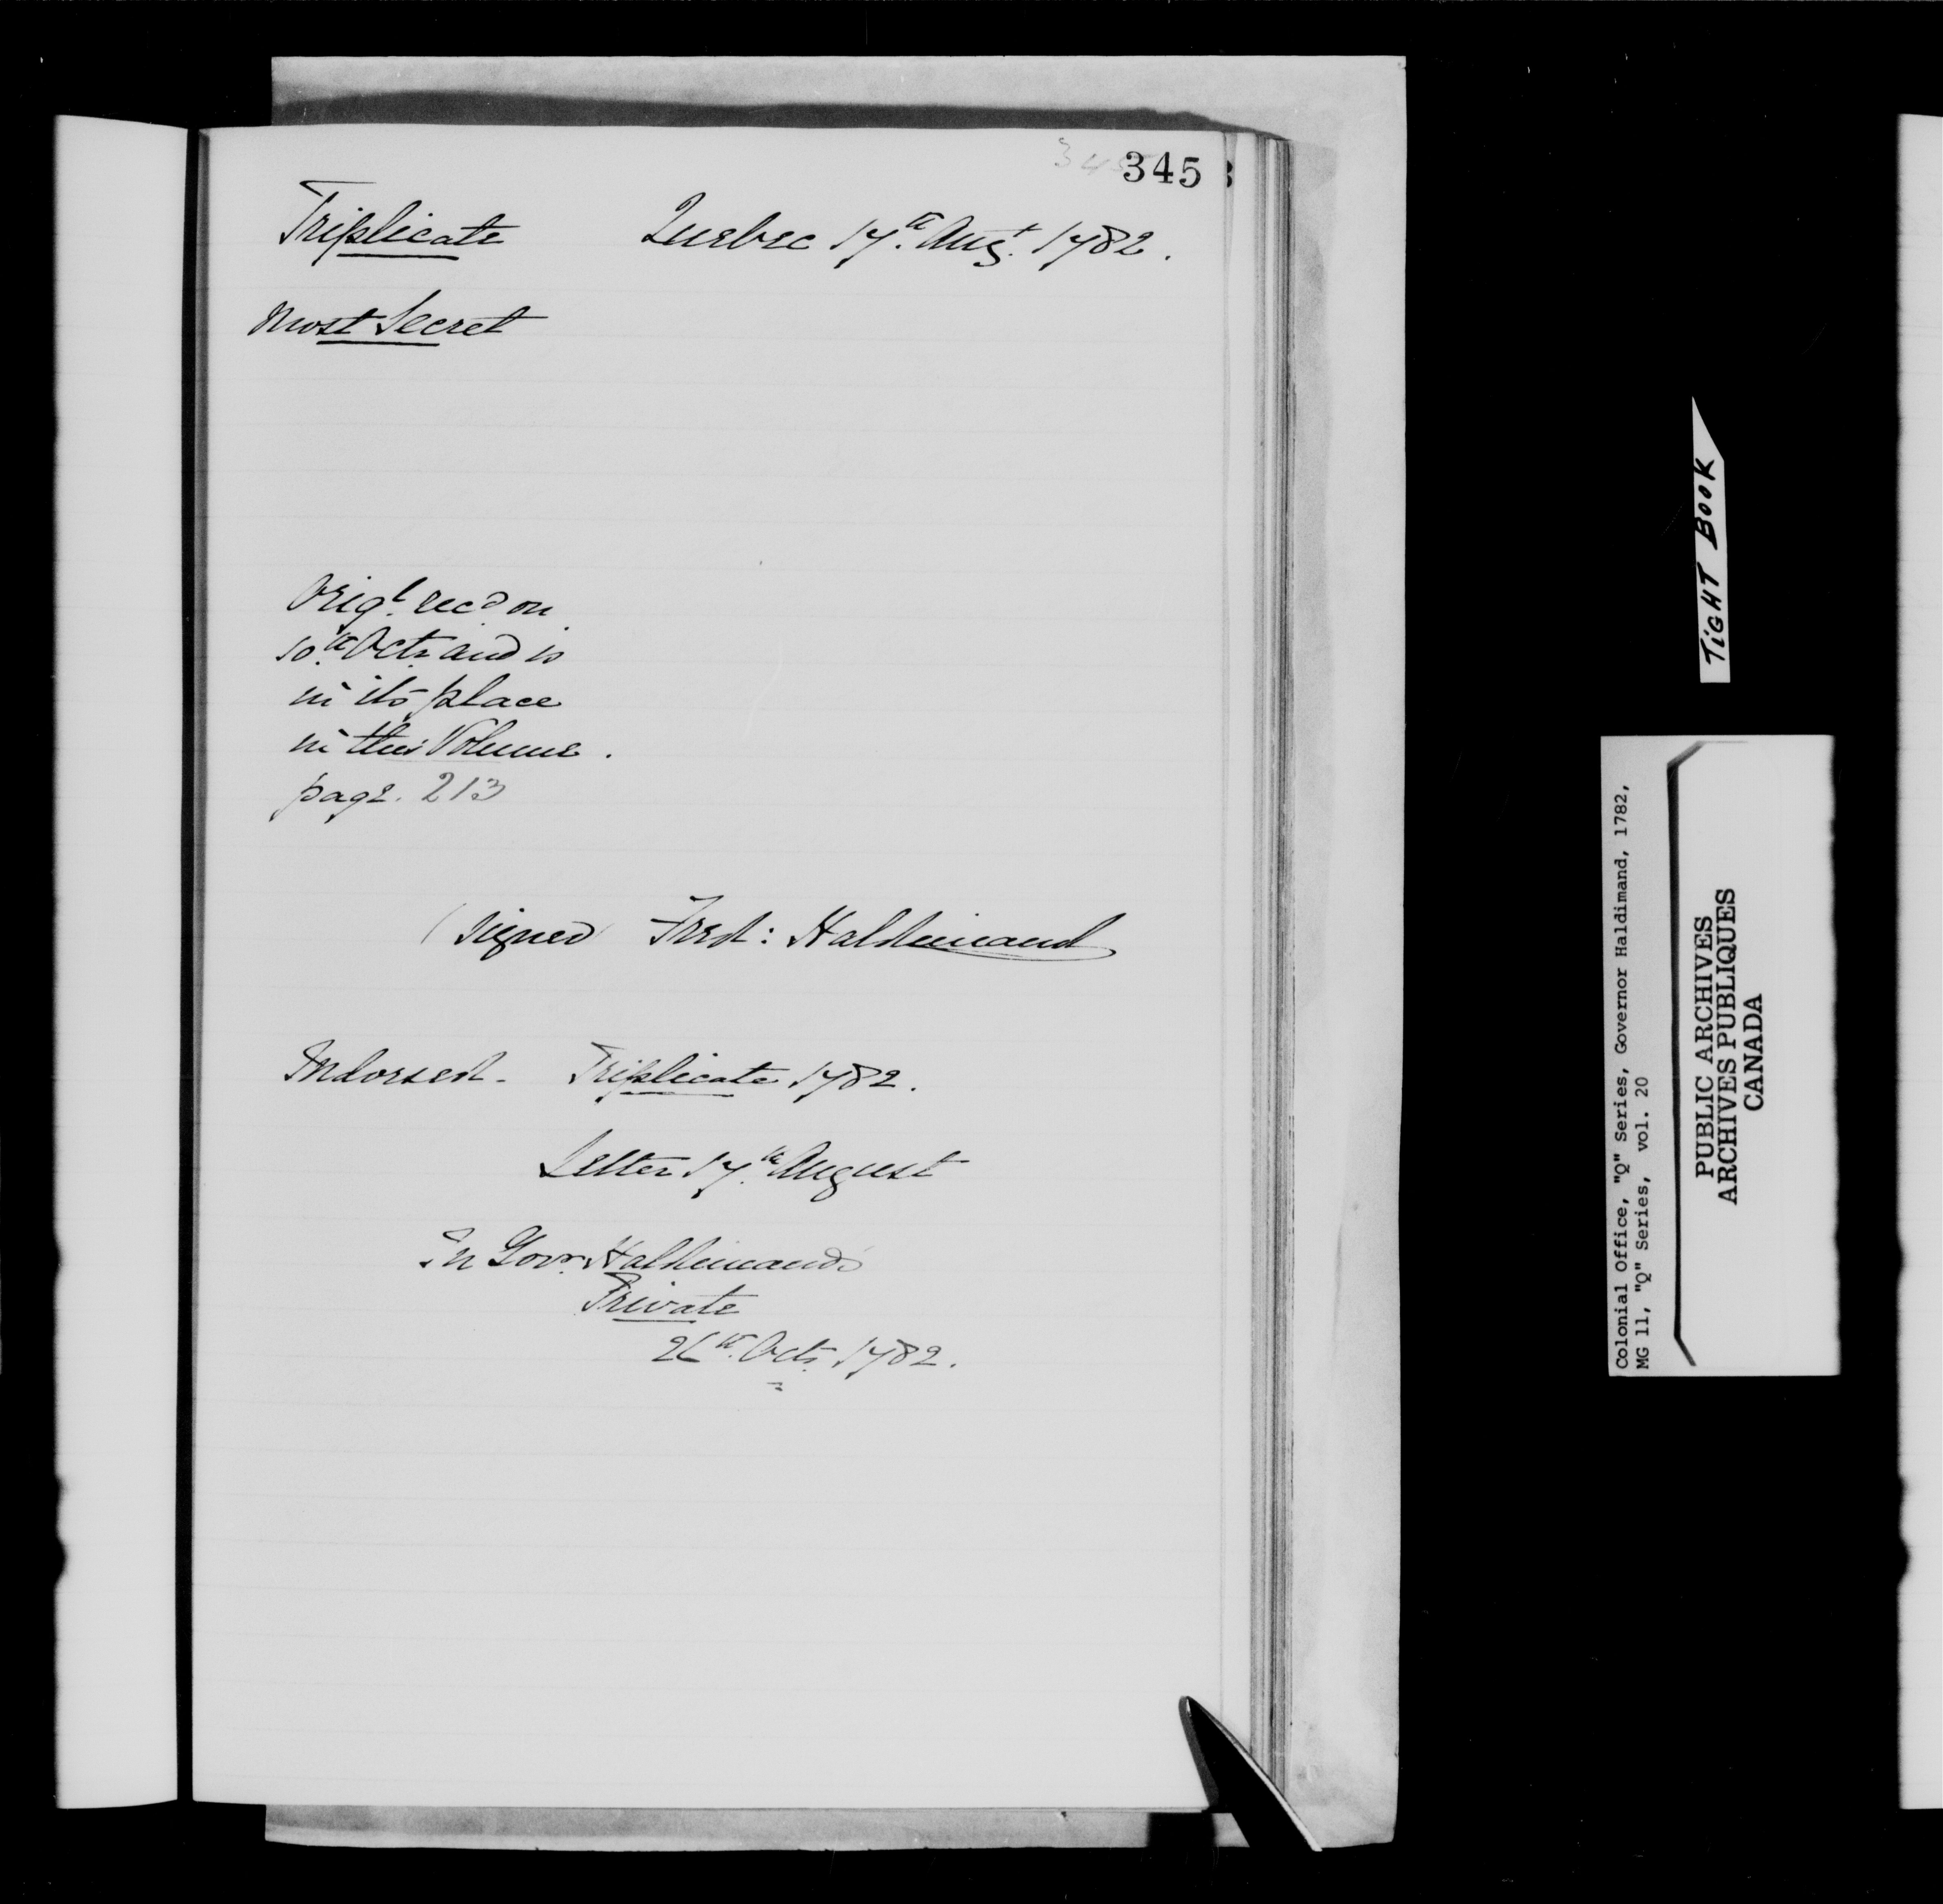 345
345
Triplicate Quebec 17th. Augt. 1782.
Most Secret
Origl. recd on
10th. Octr and is
in its place
in this Volume.
page. 213
(signed) Fred: Haldimand
Indorsed - Triplicate 1782.
Letter 17th. August
In Govr. Haldimand's
Private
26th. Octr. 1782.
TIGHT BOOK
Colonial Office, "Q" Series, Governor Haldimand, 1782,
MG 11, "Q" Series, vol. 20
PUBLIC ARCHIVES
ARCHIVES PUBLIQUES
CANADA